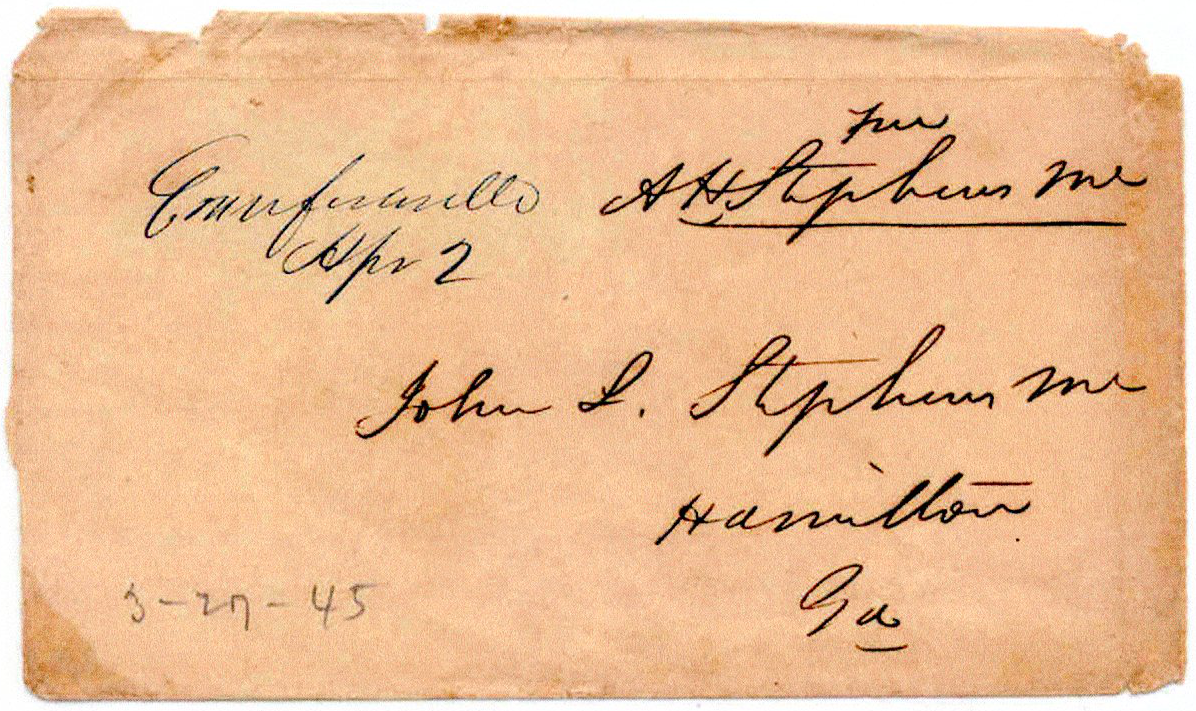 Free
Crawfordville A H Stephens MC
Apr 2
John L. Stephens MC
Hamilton
Ga
3-27-45